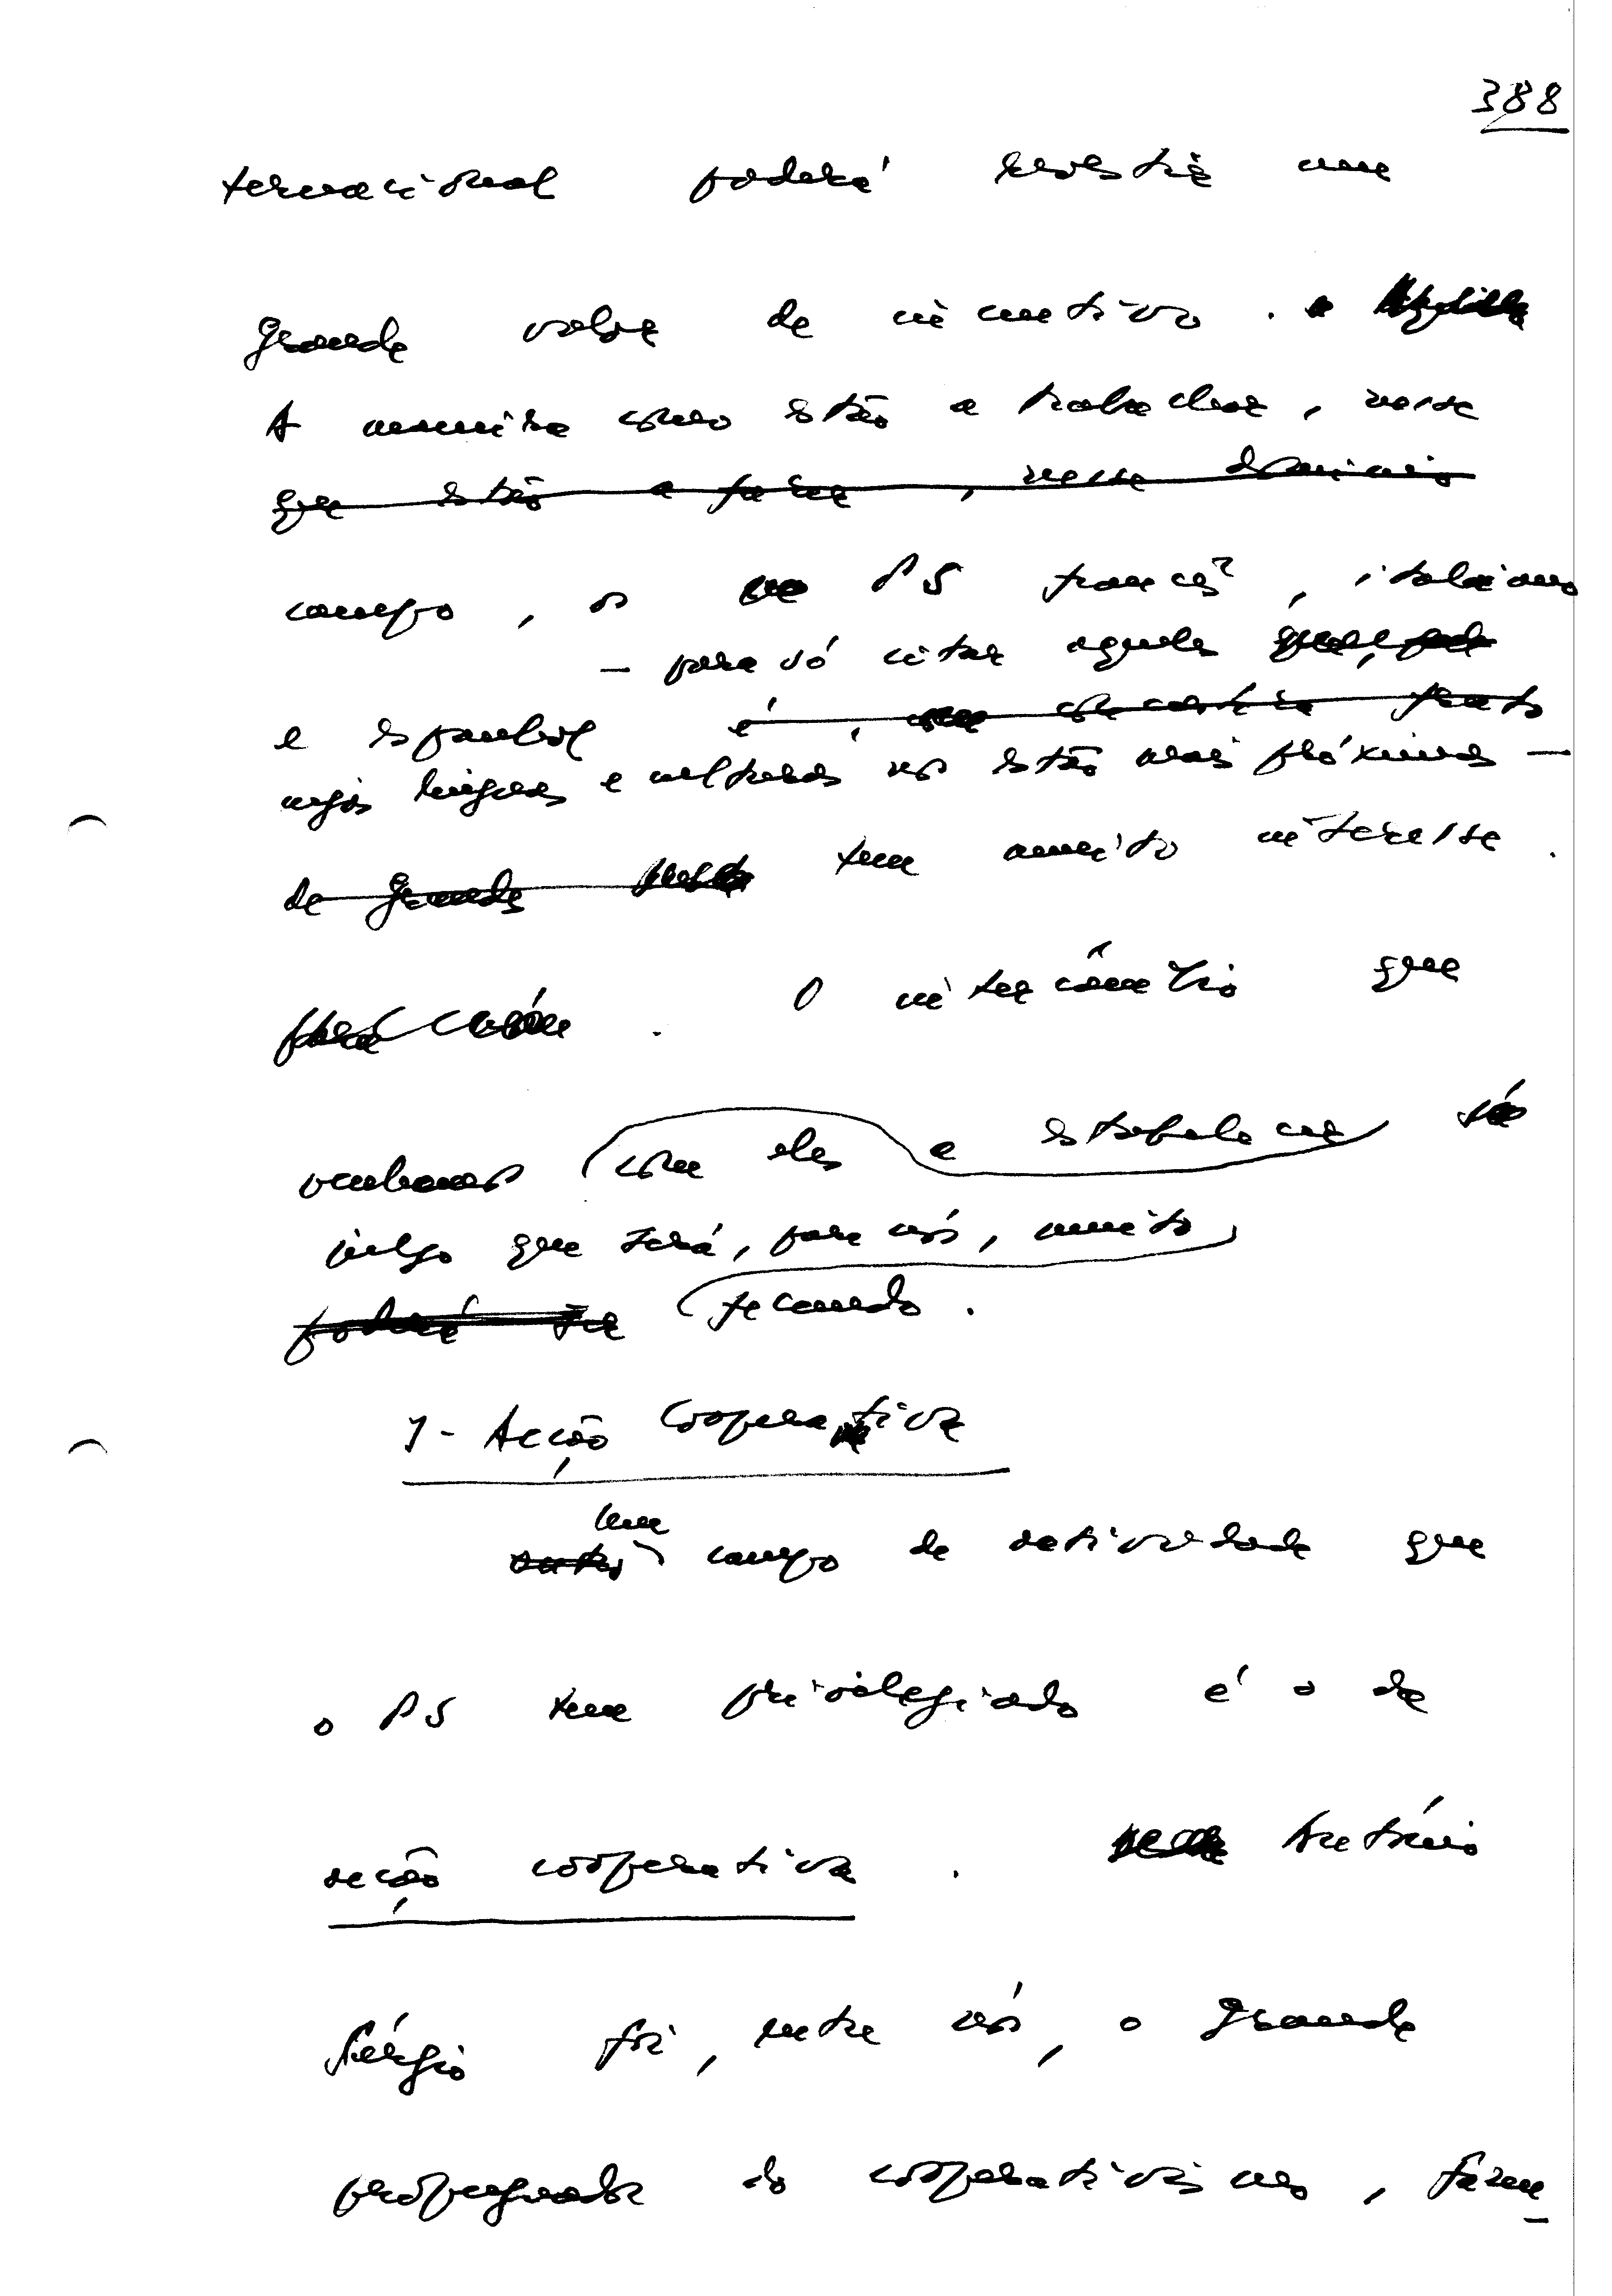 388
ternacional poderá revestir um
grande valor de incentivo.
A maneira como estão a trabalhar, nesse
que estão a fazer, nesse domínio
campo, os PS francês, italiano
– para só citar aqueles
e espanhol é,
cujas línguas e culturas nos estão mais próximas –
de grande tem muito interesse.
O intercâmbio que
venhamos com eles a estabelecer
julgo que será, para nós, muito
poderá ser fecundo.
7- Acção Cooperativa
Um
outro campo de actividade que
o PS tem privilegiado é o da
acção cooperativa. António
Sérgio foi, entre nós, o grande
propugnador do cooperativismo, fazen